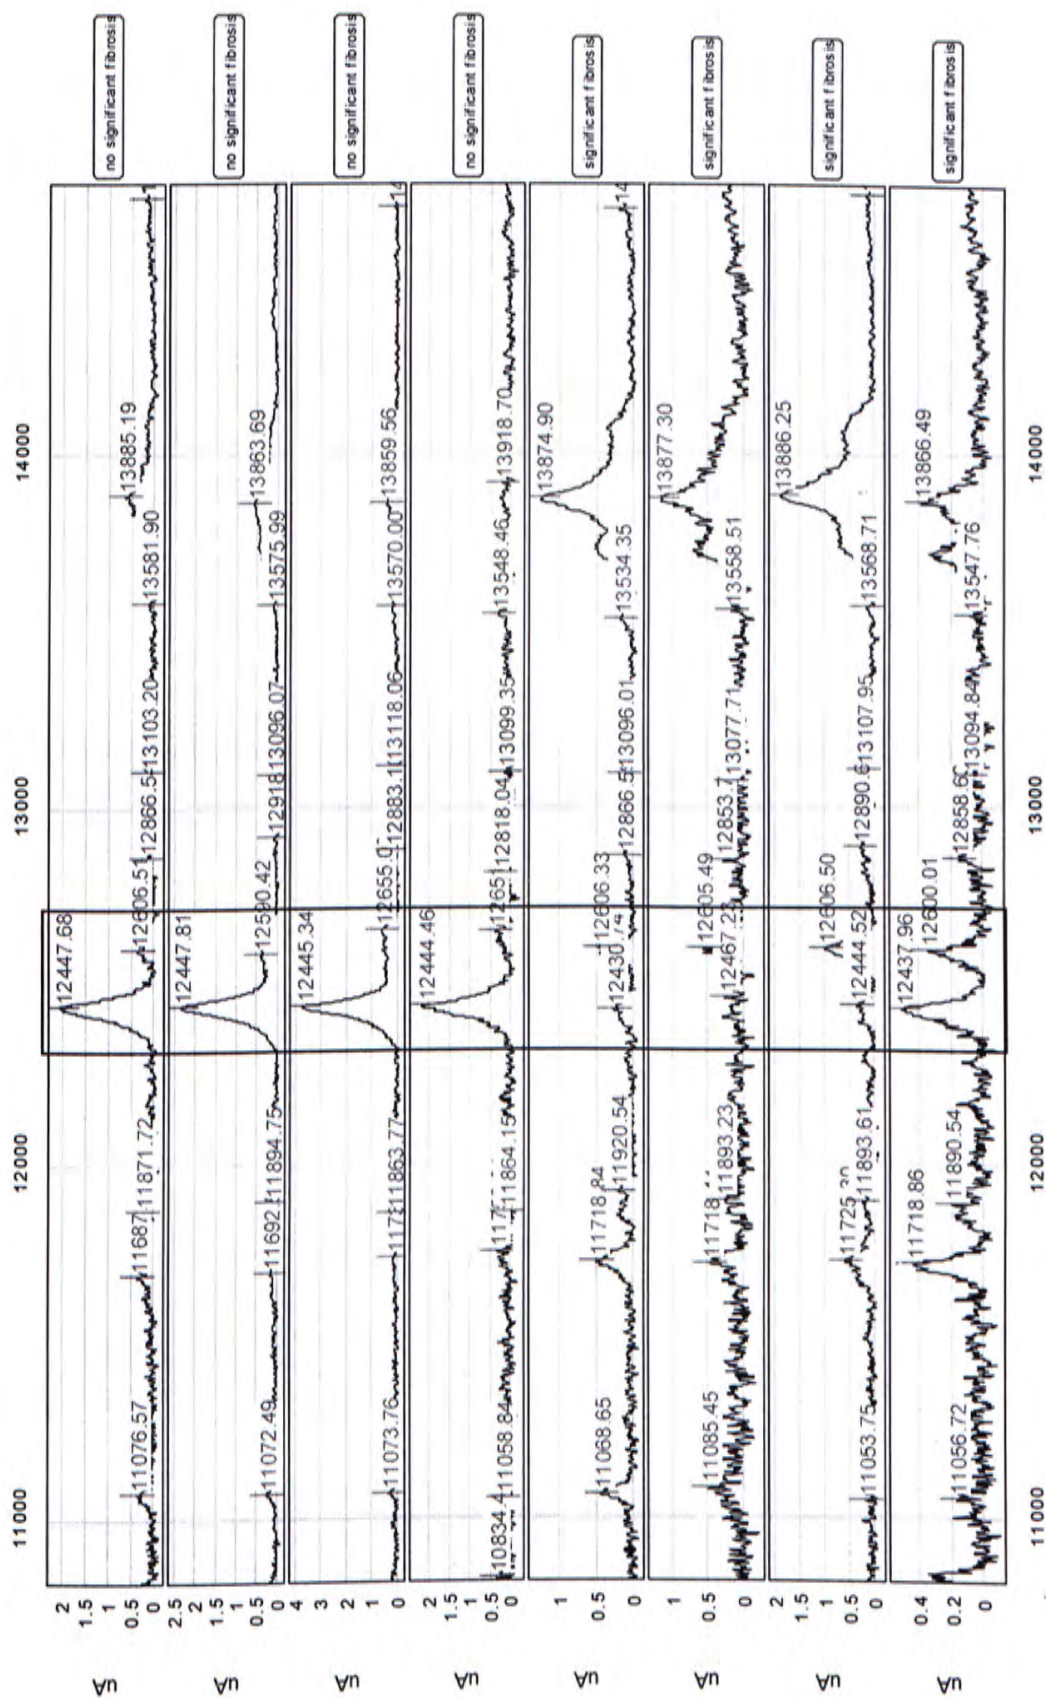 11000 12000 13000 14000
uA
2
1.5
1
0.5
0
11076.57 11687 11871.72 12447.68 12606.51 12866.5 13103.20 13581.90 13885.19
no significant fibrosis
uA
2.5
2
1.5
1
0.5
0
11072.49 11692 11894.75 12447.81 12590.42 12918 13096.07 13575.99 13863.69
no significant fibrosis
uA
4
3
2
1
0
11073.76 1173 11863.77 12445.34 12655.0 12883.1 13118.06 13570.00 13859.56 14
no significant fibrosis
uA
2
1.5
1
0.5
0
10834.4 11058.84 117 11864.15 12444.46 12651 12818.04 13099.35 13548.46 13918.70
no significant fibrosis
uA
1
0.5
0
11068.65 11718.84 11920.54 12430.74 12606.33 12866.5 13096.01 13534.35 13874.90 14
significant fibrosis
uA
1
0.5
0
11085.45 11718 11893.23 12467.23 12605.49 12853.7 13077.71 13558.51 13877.30
significant fibrosis
uA
2
1.5
1
0.5
0
11053.75 11725 11893.61 12444.52 12606.50 12890.6 13107.95 13568.71 13886.25
significant fibrosis
uA
0.4
0.2
0
11056.72 11718.86 11890.54 12437.96 12600.01 12858.6 13094.84 13547.76 13866.49
significant fibrosis
11000 12000 13000 14000